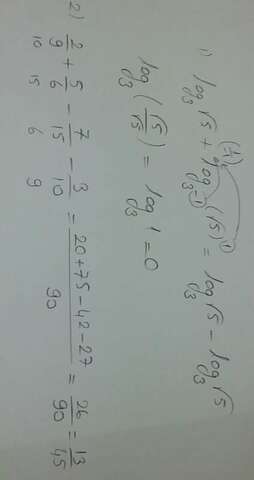 1) log₃ √5 + log₃⁻¹ (√5)¹ = log₃ √5 - log₃ √5
log₃ (√5/√5) = log₃ 1 = 0
2) 2/9 + 5/6 - 7/15 - 3/10 = (20+75-42-27)/90 = 26/90 = 13/45
10 15 6 9